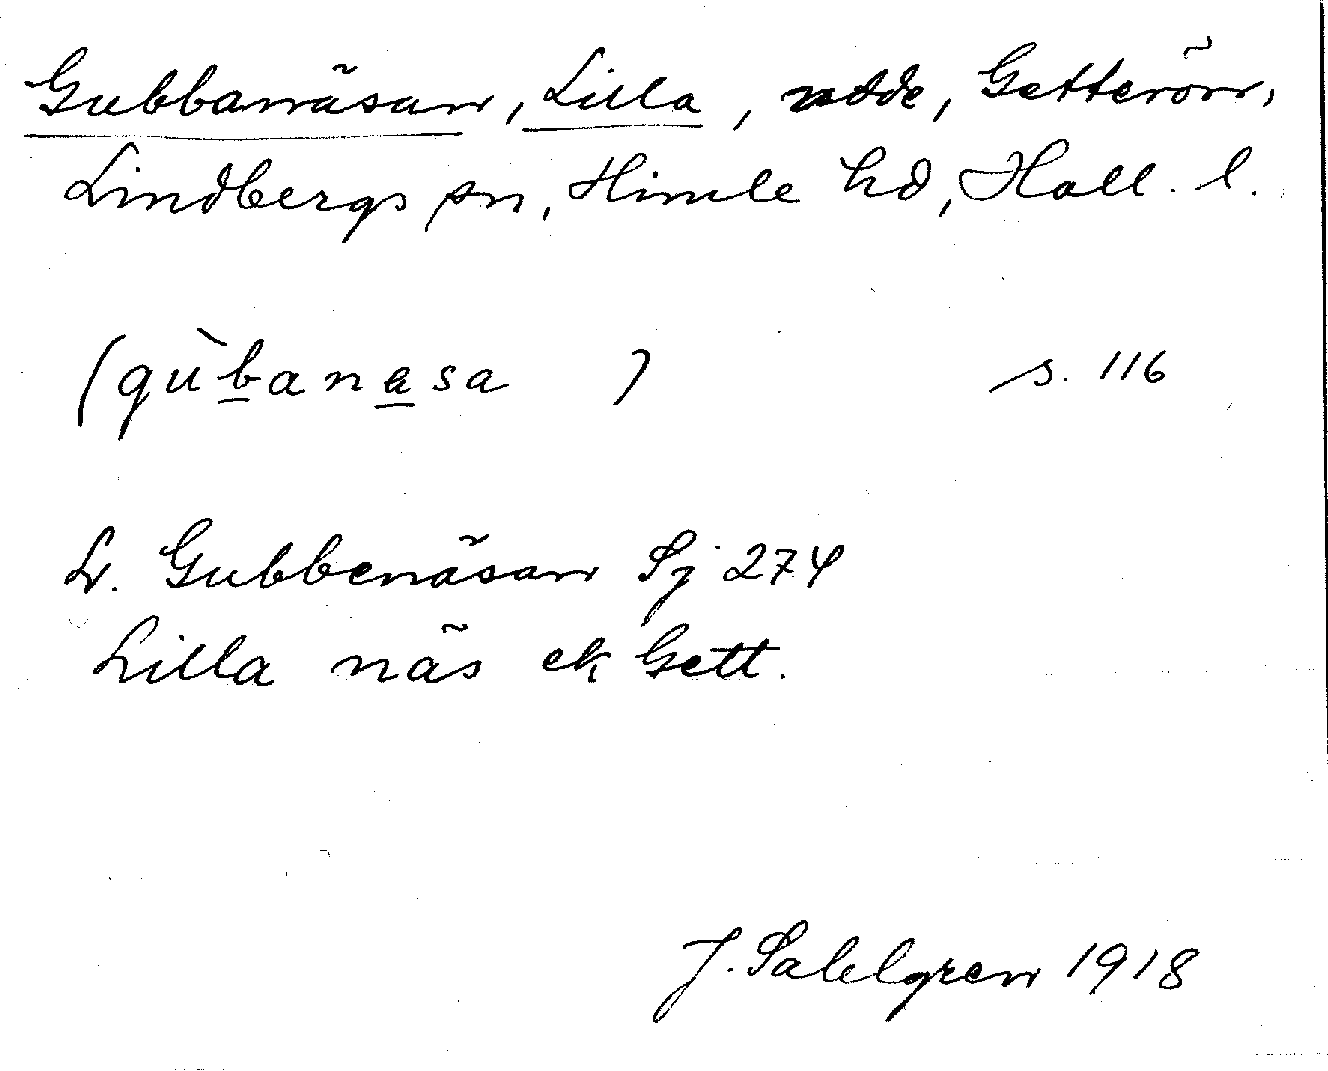 Gubbanäsan, Lilla, udde, Getterön,
Lindbergs sn, Himle hd, Hall. l.
(gùbanasa ) s. 116
L. Gubbenäsan Sj 274
Lilla näs ek Gett.
J. Sahlgren 1918